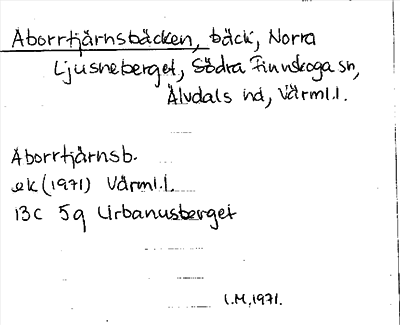 Aborrtjärnsbäcken, bäck, Norra
Ljusneberget, Södra Finnskoga sn,
Älvdals hd, Värml.l.
Aborrtjärnsb.
ek (1971) Värml.l.
13C 5g Urbanusberget
I.M, 1971.